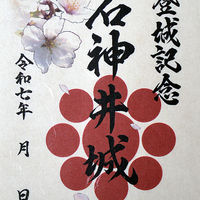 登城記念
石神井城
令和七年 月 日